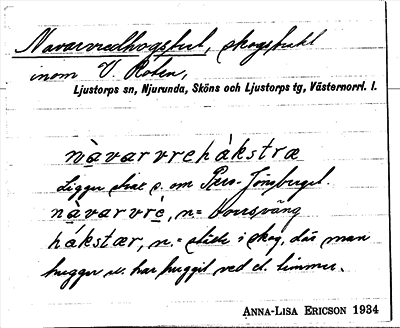 Navarvredhogstut, skogstrakt
inom V. Roten,
Ljustorps sn, Njurunda, Sköns och Ljustorps tg, Västernorrl. l.
nàvarvrehàkstræ
Ligger strax s. om Pers-Jönsberget.
nàvarvrè, n = borrsväng
hákstær, n. = ställe i skog, där man
hugger el. har huggit ved el. timmer.
ANNA-LISA ERICSON 1934